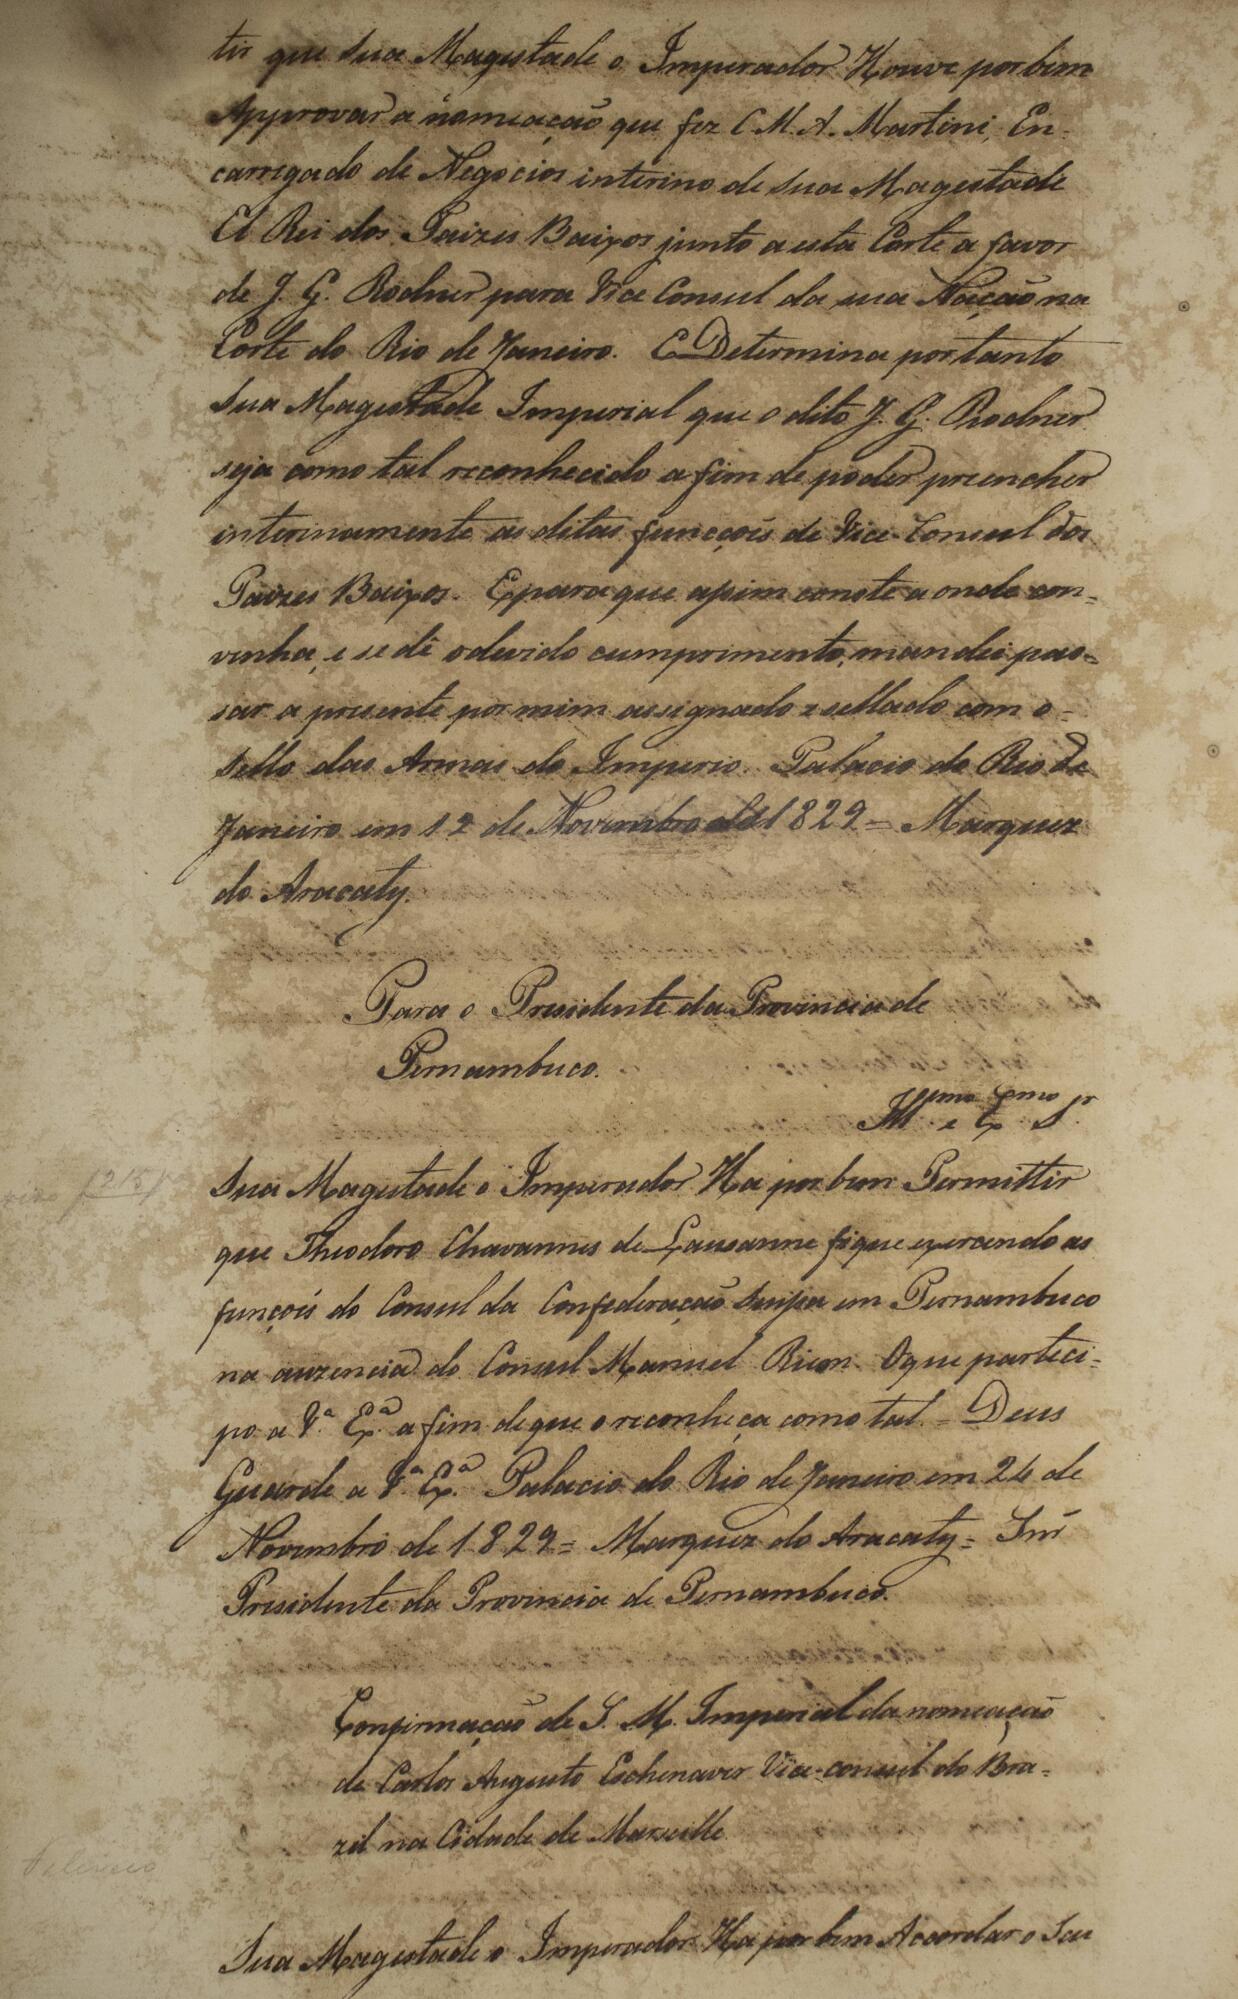 tir que Sua Magestade o Imperador Houve por bem
Approvar a nomeação que fez C M. A. Martini, En-
carregado de Negocios interino de Sua Magestade
El Rei dos Paizes Baixos junto a esta Corte a favor
de J. G. Rodner para Vice Consul da sua Nação na
Corte do Rio de Janeiro. E Determina portanto
Sua Magestade Imperial que o dito J. G. Rodner
seja como tal reconhecido a fim de poder preencher
interinamente as ditas funcçoẽs de Vice-Consul dos
Paizes Baixos. E para que assim conste a onde con-
venha, e se dê o devido cumprimento, mandei pas-
sar a presente por mim assignado e sellado com o
Sello das Armas do Imperio. Palacio do Rio de
Janeiro em 12 de Novembro de 1829 = Marquez
do Aracaty.
Para o Presidente da Provincia de
Pernambuco.
Illmo e Exmo Sr
Sua Magestade o Imperador Ha por bem Permittir
que Theodoro Chavannes de Lausanne fique exercendo as
funçoẽs do Consul da Confederação Suissa em Pernambuco
na auzencia do Consul Manuel Rion. O que parteci-
po a V.ª Ex.ª a fim de que o reconheça como tal. = Deus
Guarde a V.ª Ex.ª Palacio do Rio de Janeiro em 24 de
Novembro de 1829 = Marquez do Aracaty = Snr
Presidente da Provincia de Pernambuco.
Confirmação de S. M. Imperial da nomeação
de Carlos Augusto Eschenaver Vice-consul do Bra-
zil na Cidade de Marseille
Sua Magestade o Imperador Ha por bem Accordar o Seu